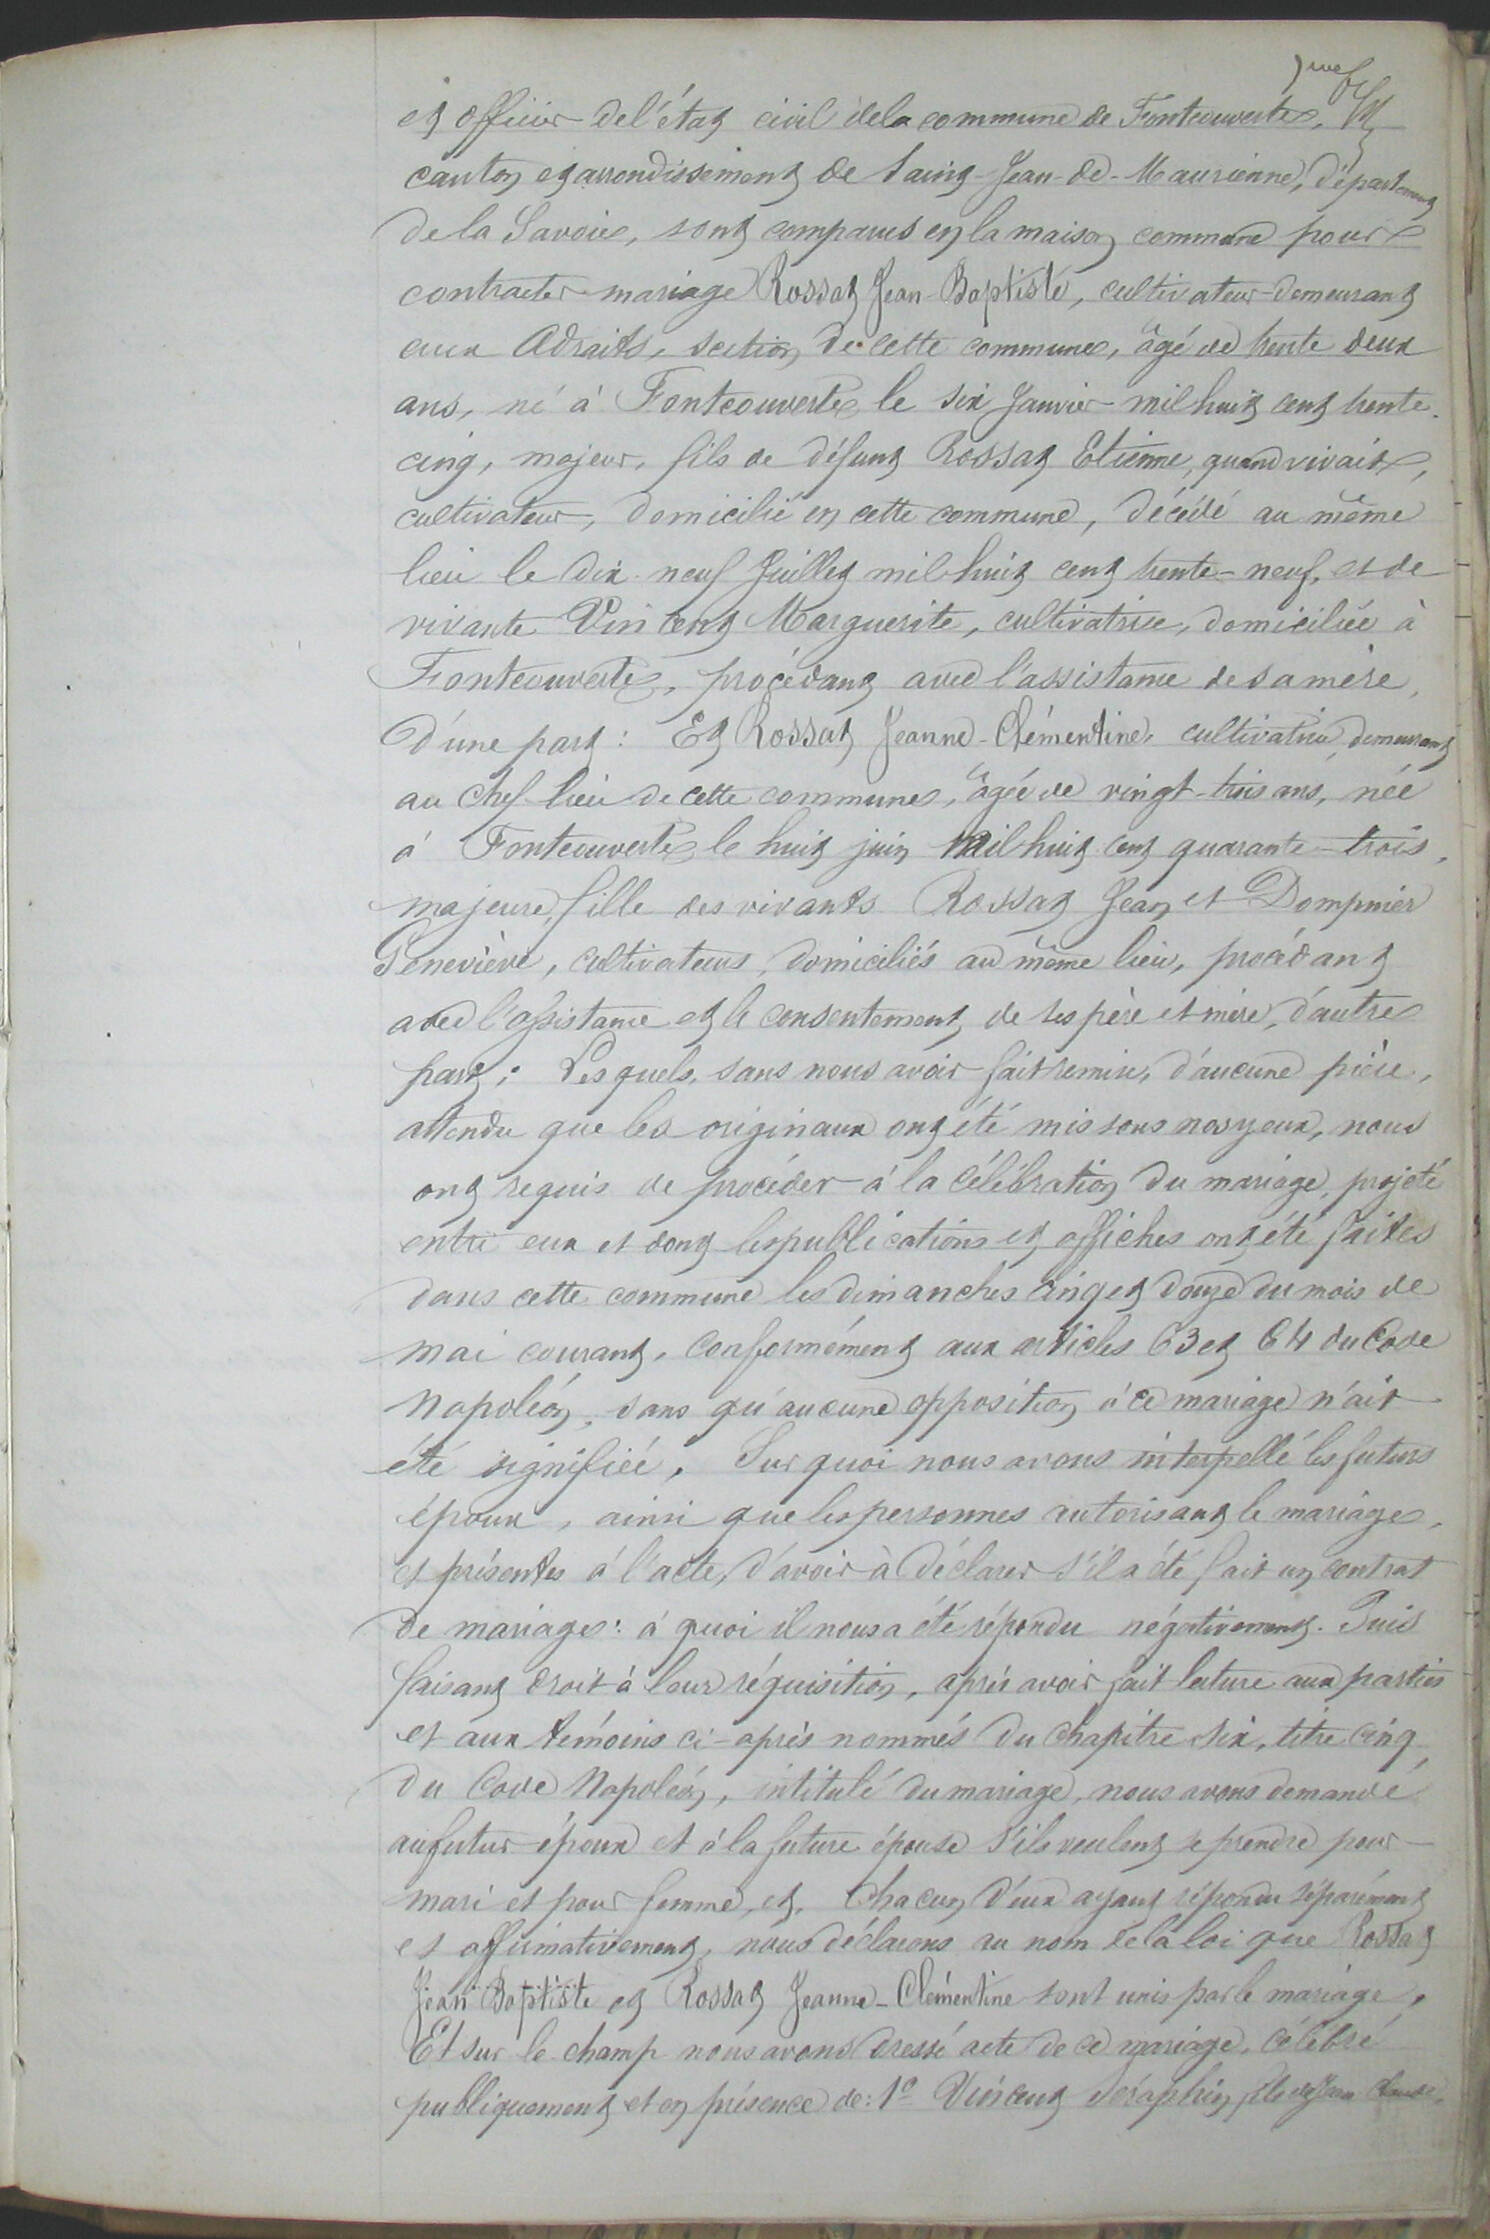 et officier de l'état civil de la commune de Fontcouverte,
canton et arrondissement de Saint-Jean-de-Maurienne, département
de la Savoie, sont comparus en la maison commune pour
contracter mariage Rossat Jean-Baptiste, cultivateur demeurant
aux Adraits, section de cette commune, âgé de trente deux
ans, né à Fontcouverte le six Janvier mil huit cent trente.
cinq, majeur, fils de défunt Rossat Etienne, quand vivait,
cultivateur, domicilié en cette commune, décédé au même
lieu le dix-neuf Juillet mil-huit cent trente-neuf, et de
vivante Vincent Marguerite, cultivatrice, domiciliée à
Fontcouverte, procédant avec l'assistance de sa mère,
d'une part : Et Rossat Jeanne-Clémentine, cultivatrice, demeurant
au chef-lieu de cette commune, âgée de vingt-trois ans, née
à Fontcouverte le huit juin mil huit cent quarante-trois,
majeure, fille des vivants Rossat Jean et Dompnier
Geneviève, cultivateurs, domiciliés au même lieu, procédant
avec l'assistance et le consentement de ses père et mère, d'autre
part ; Lesquels, sans nous avoir fait remise, d'aucune pièce,
attendu que les originaux ont été mis sous nos yeux, nous
ont requis de procéder à la célébration du mariage, projeté
entre eux et dont les publications et affiches ont été faites
dans cette commune les dimanches cinq et douze du mois de
mai courant, conformément aux articles 63 et 64 du Code
Napoléon, sans qu'aucune opposition à ce mariage n'ait
été signifiée. Sur quoi nous avons interpellé les futurs
époux, ainsi que les personnes autorisant le mariage,
et présentes à l'acte, d'avoir à déclarer s'il a été fait un contrat
de mariage : à quoi il nous a été répondu négativement. Puis
faisant droit à leur réquisition, après avoir fait lecture aux parties
et aux témoins ci-après nommés du chapitre six, titre cinq
du Code Napoléon, intitulé du mariage, nous avons demandé
au futur époux et à la future épouse s'ils veulent se prendre pour
mari et pour femme, et, chacun d'eux ayant répondu séparément
et affirmativement, nous déclarons au nom de la loi que Rossat
Jean Baptiste et Rossat Jeanne-Clémentine sont unis par le mariage,
Et sur le champ nous avons dressé acte de ce mariage, célébré
publiquement et en présence de : 1º Vincent Séraphin, fils de Jean Claude,